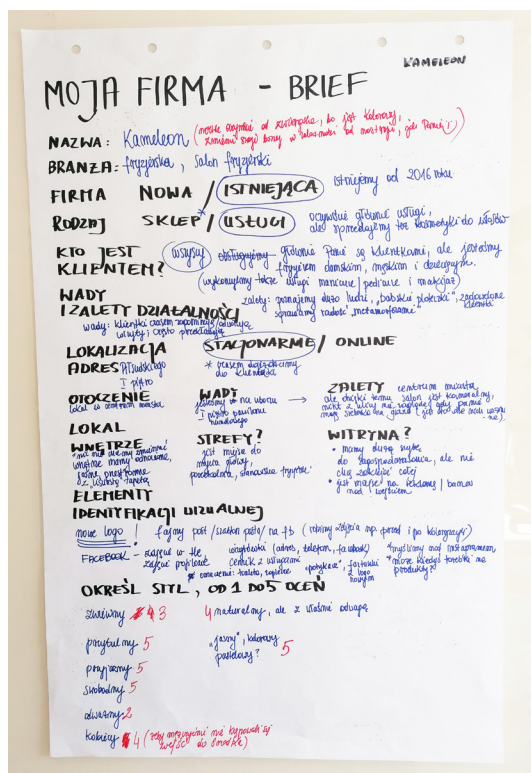 KAMELEON
MOJA FIRMA - BRIEF
NAZWA: Kameleon (może od zwierzątka, bo jest kolorowy,
zmienia swoje kolory w zależności od nastroju, jak Panie :))
BRANŻA: fryzjerska, salon fryzjerski
FIRMA NOWA / ISTNIEJĄCA istniejemy od 2016 roku
RODZAJ SKLEP / USŁUGI oczywiście głównie usługi,
ale sprzedajemy też kosmetyki do włosów
KTO JEST KLIENTEM? wszyscy obsługujemy głównie Panie są klientkami, ale jesteśmy
fryzjerem damskim, męskim i dziecięcym.
(wykonujemy także usługi manicure / pedicure i makijaż)
WADY I ZALETY DZIAŁALNOŚCI
zalety: poznajemy dużo ludzi, "babskie ploteczki", zadowolone klientki
sprawiamy radość "metamorfozami"
wady: klientki czasem zapominają / odwołują
wizyty i często przedłużają
LOKALIZACJA STACJONARNIE / ONLINE
ADRES Piłsudskiego
I piętro
* czasem dojeżdżamy
do klientki
OTOCZENIE
lokal w centrum miasta
WADY
jesteśmy na uboczu
I piętro
ZALETY centrum miasta,
ale dzięki temu salon jest kameralny,
nikt z ulicy nie zagląda, gdy panie
mają
LOKAL
WNĘTRZE
nie chcemy zmieniać
wnętrze mamy odnowione,
jasne, przestronne
z tapetą
STREFY?
jest miejsce do
mycia głowy,
poczekalnia, stanowiska fryzjerskie
WITRYNA?
• mamy dużą szybę
do zagospodarowania, ale nie
chcę zaklejać całej
• jest miejsce na reklamę / baner
nad wejściem
ELEMENTY
IDENTYFIKACJI WIZUALNEJ
nowe logo! fajny post / szablon posta / na fb (robimy zdjęcia np. przed i po koloryzacji)
FACEBOOK - zdjęcie w tle,
zdjęcie profilowe
wizytówki (adres, telefon, facebook)
cennik z usługami
oznaczenie: toaleta, zaplecze
"potykacz", fartuszki
z logo
nowym
*myślimy nad instagramem
*może kiedyś torebki na
produkty?
OKREŚL STYL, OD 1 DO 5 OCEŃ
4 3
4 naturalny, ale z odwagą
przytulny 5
"jasny", kolorowy
pastelowy? 5
przyjazny 5
swobodny 5
odważny 2
kobiecy 4 (żeby mężczyźni nie krępowali się
wejść do środka)